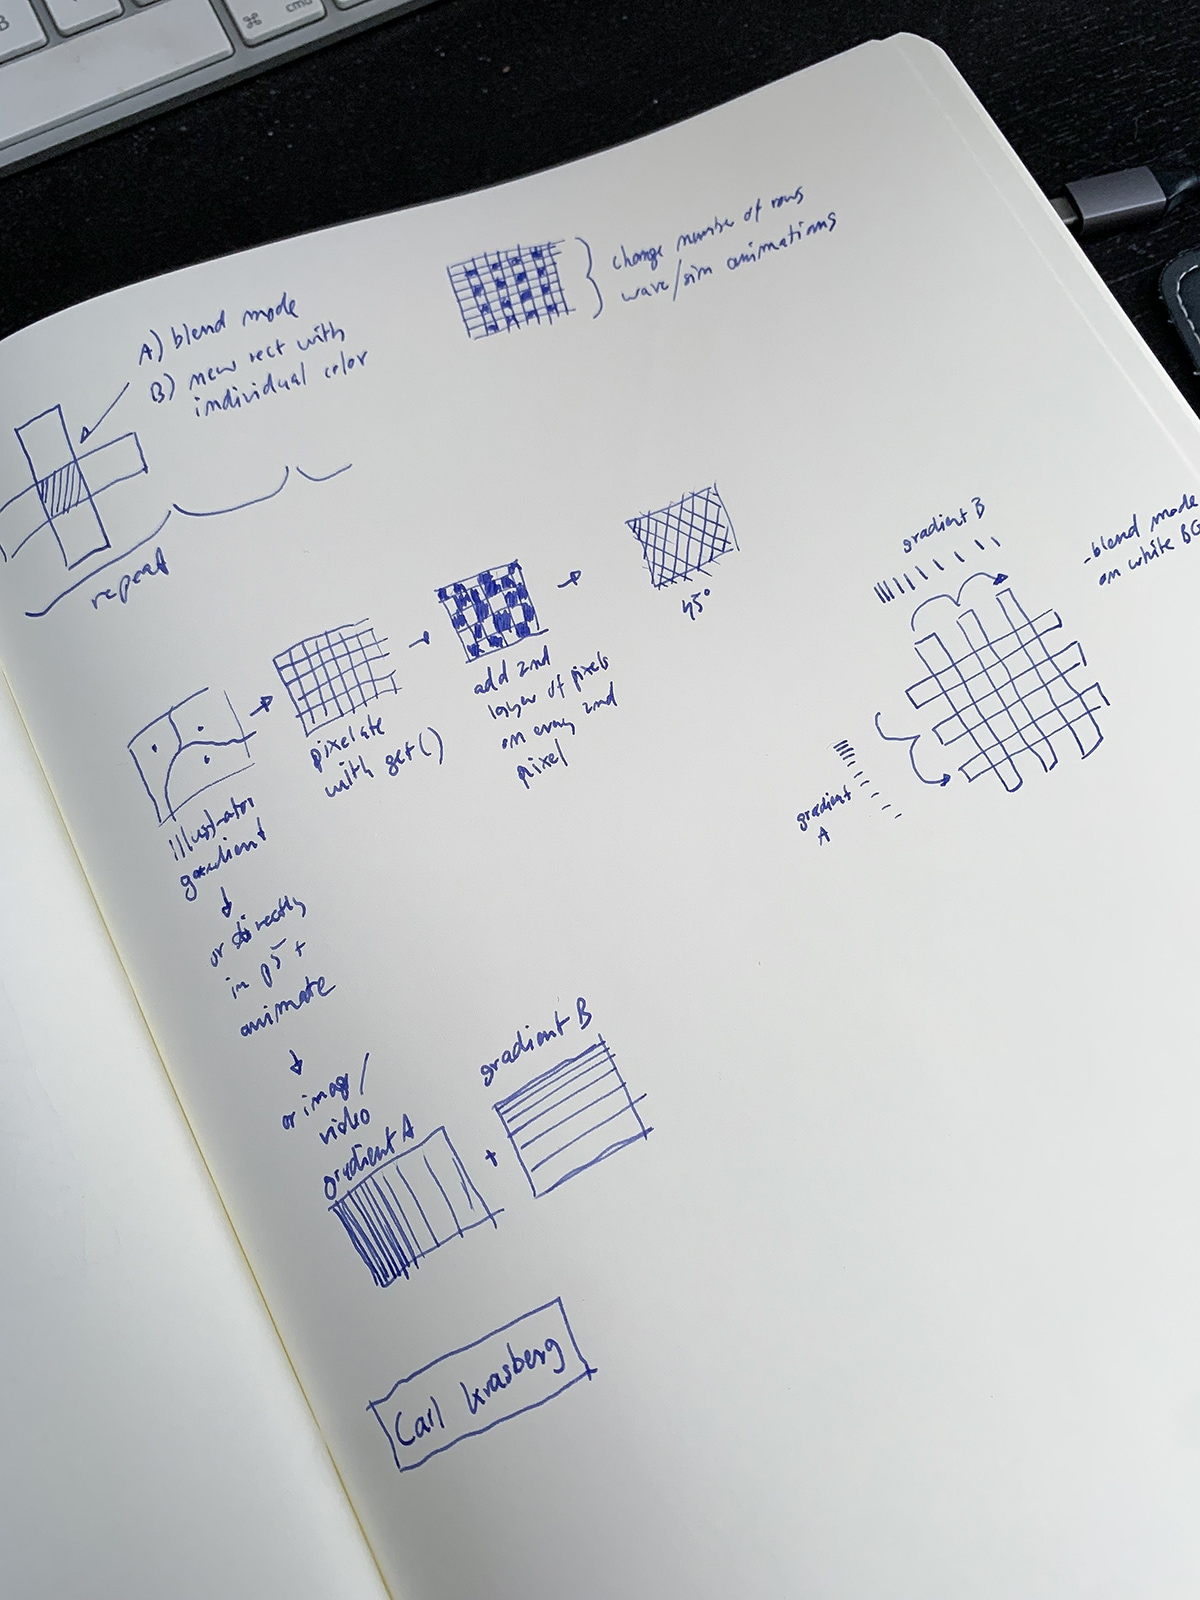 cmd
⌘
B
change number of rows
wave/sin animations
A) blend mode
B) new rect with
individual color
repeat
gradient B
- blend mode
on white BG
45°
add 2nd
layer of pixels
on every 2nd
pixel
pixelate
with get()
gradient
A
Illustrator
gradient
or directly
in p5 +
animate
or image/
video
gradient A
+
gradient B
Carl Krasberg